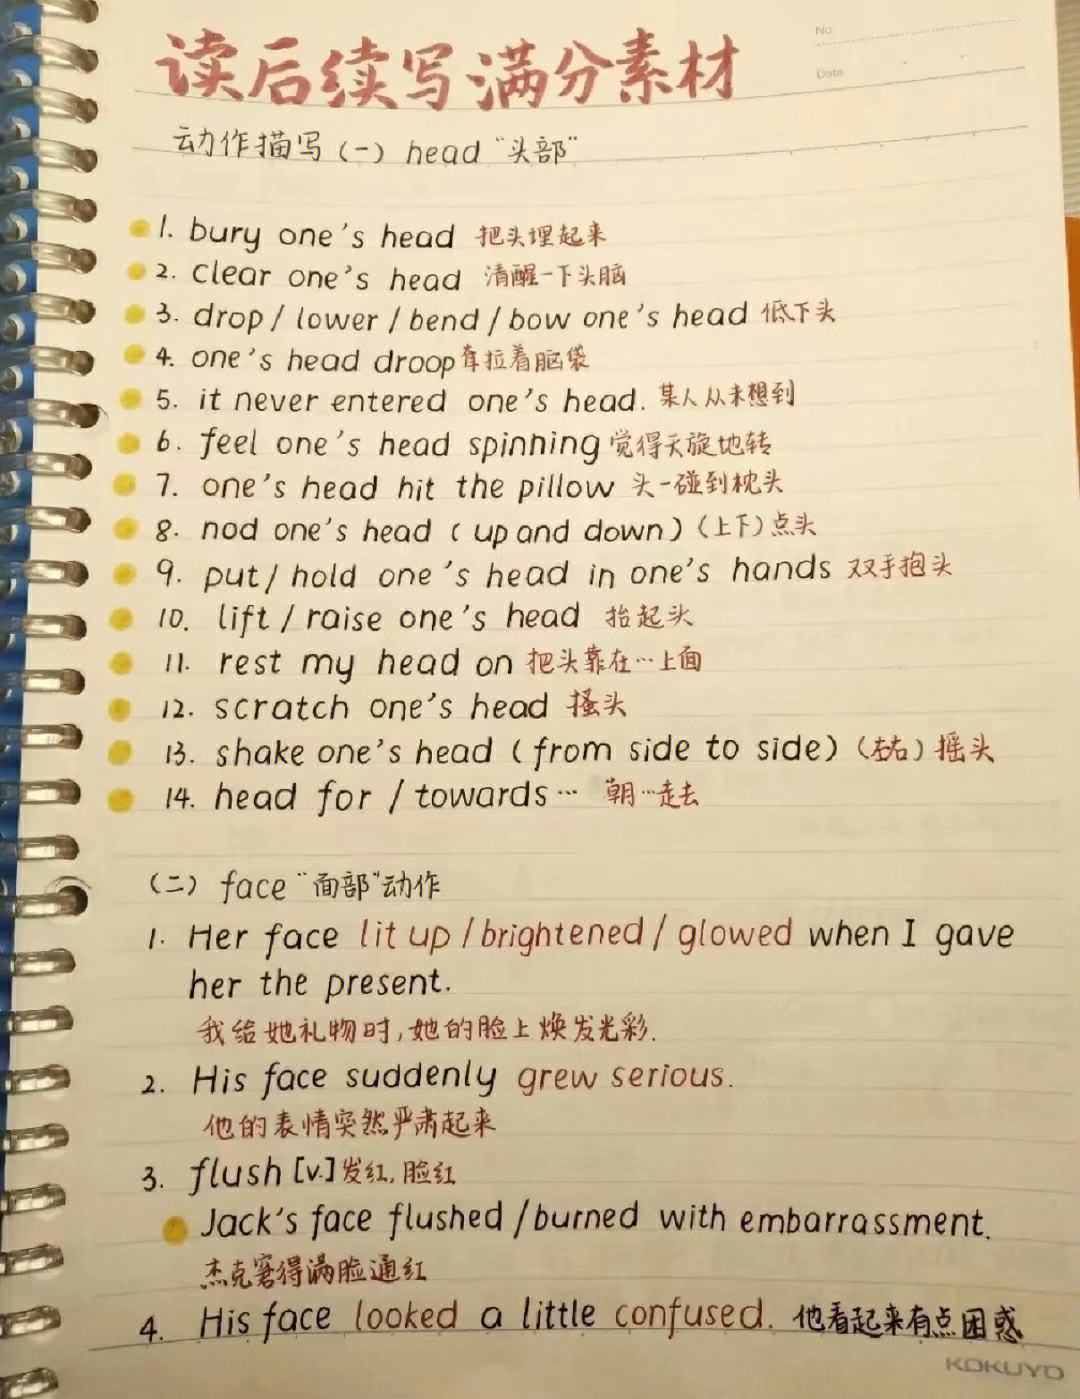 No.
读后续写满分素材
Date
动作描写(一) head "头部"
1. bury one's head 把头埋起来
2. clear one's head 清醒一下头脑
3. drop / lower / bend / bow one's head 低下头
4. one's head droop 耷拉着脑袋
5. it never entered one's head. 某人从未想到
6. feel one's head spinning 觉得天旋地转
7. one's head hit the pillow 头一碰到枕头
8. nod one's head (up and down) (上下)点头
9. put / hold one's head in one's hands 双手抱头
10. lift / raise one's head 抬起头
11. rest my head on 把头靠在…上面
12. scratch one's head 搔头
13. shake one's head (from side to side) (左右)摇头
14. head for / towards… 朝…走去
(二) face "面部"动作
1. Her face lit up / brightened / glowed when I gave
her the present.
我给她礼物时,她的脸上焕发光彩.
2. His face suddenly grew serious.
他的表情突然严肃起来
3. flush [v.] 发红, 脸红
Jack's face flushed / burned with embarrassment.
杰克窘得满脸通红
4. His face looked a little confused. 他看起来有点困惑
KOKUYO